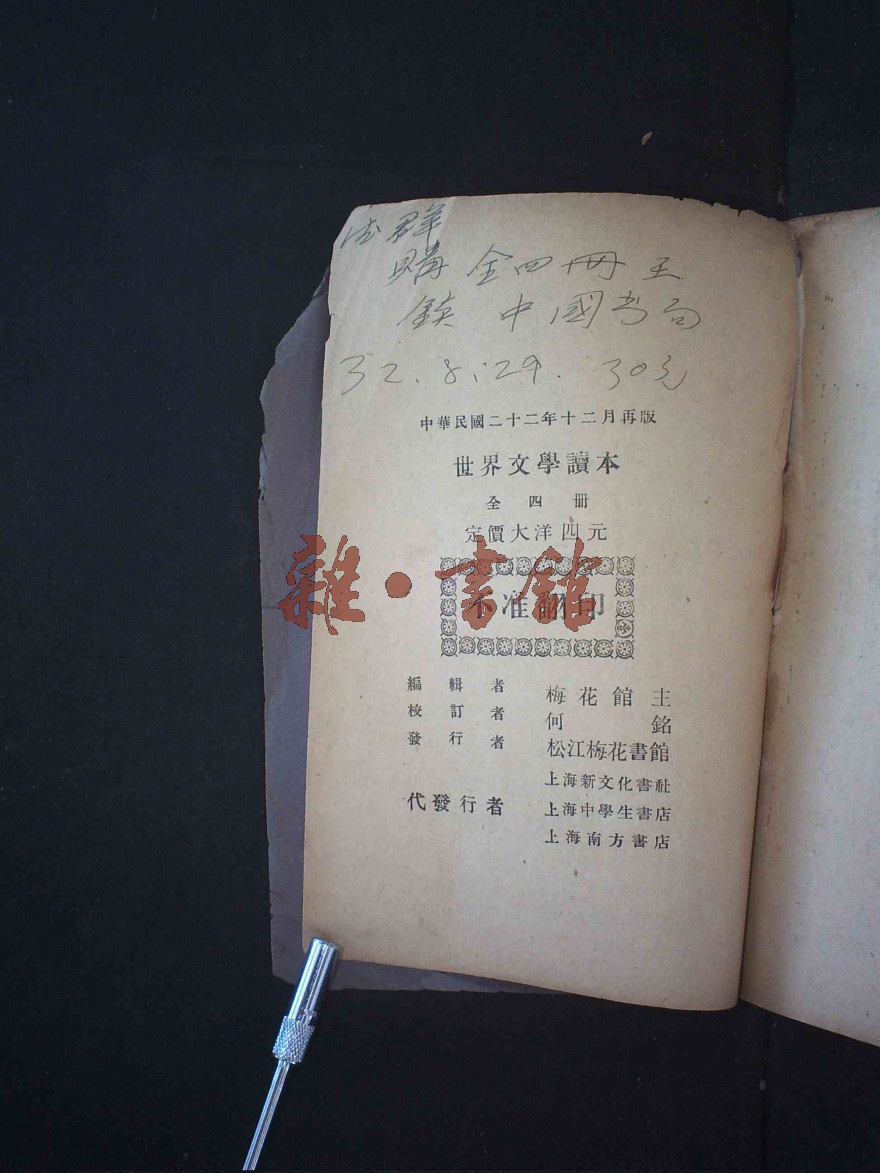 群
購 全四冊 王
鎮 中國书局
32.8.29. 30元
中華民國二十二年十二月再版
世界文學讀本
全四冊
定價大洋四元
雜·書館
不准翻印
編輯者 梅花館主
校訂者 何銘
發行者 松江梅花書館
上海新文化書社
代發行者 上海中學生書店
上海南方書店